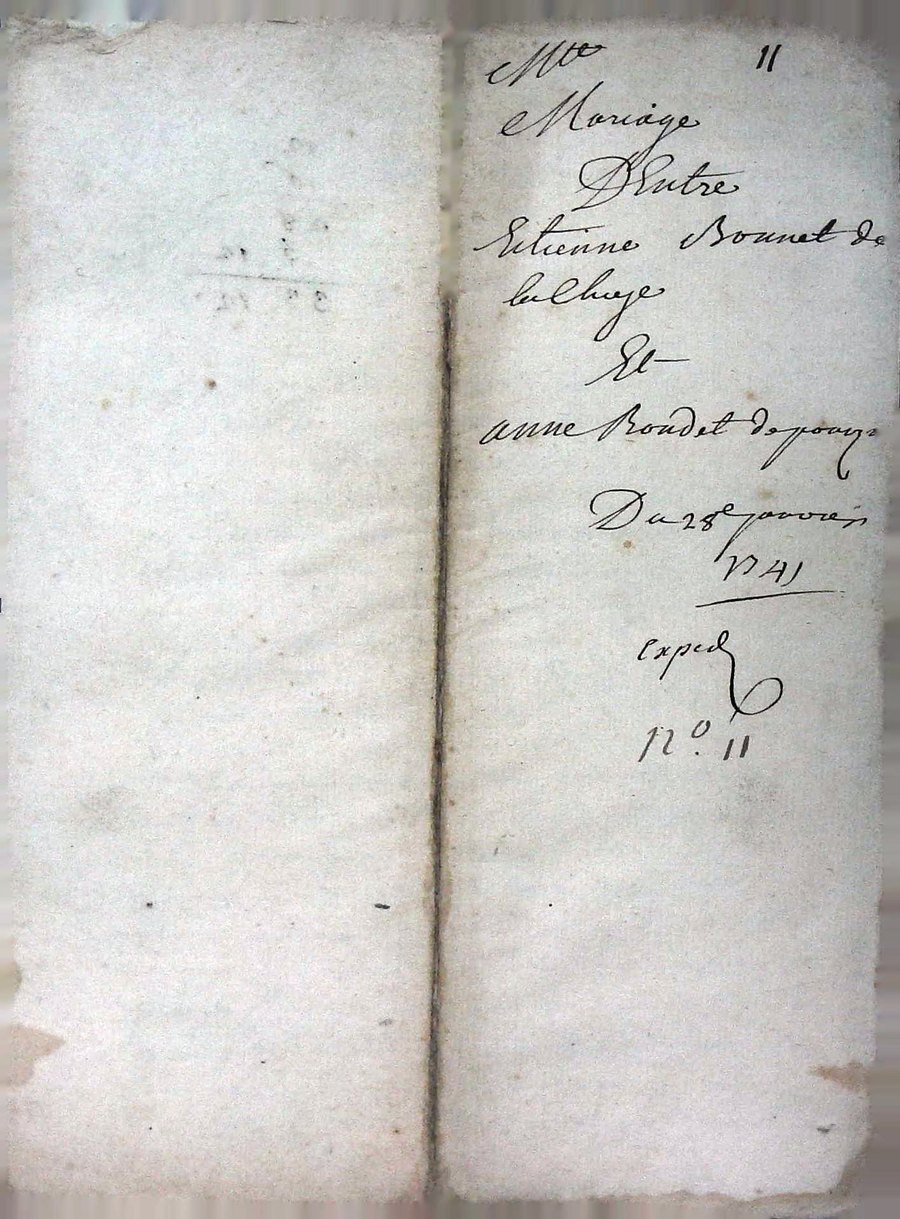 Mtte 11
Mariage
D'Entre
Estienne Bonnet de
lachage
Et
anne Boudet de
Du 28e janvier
1741
exped
n°. 11